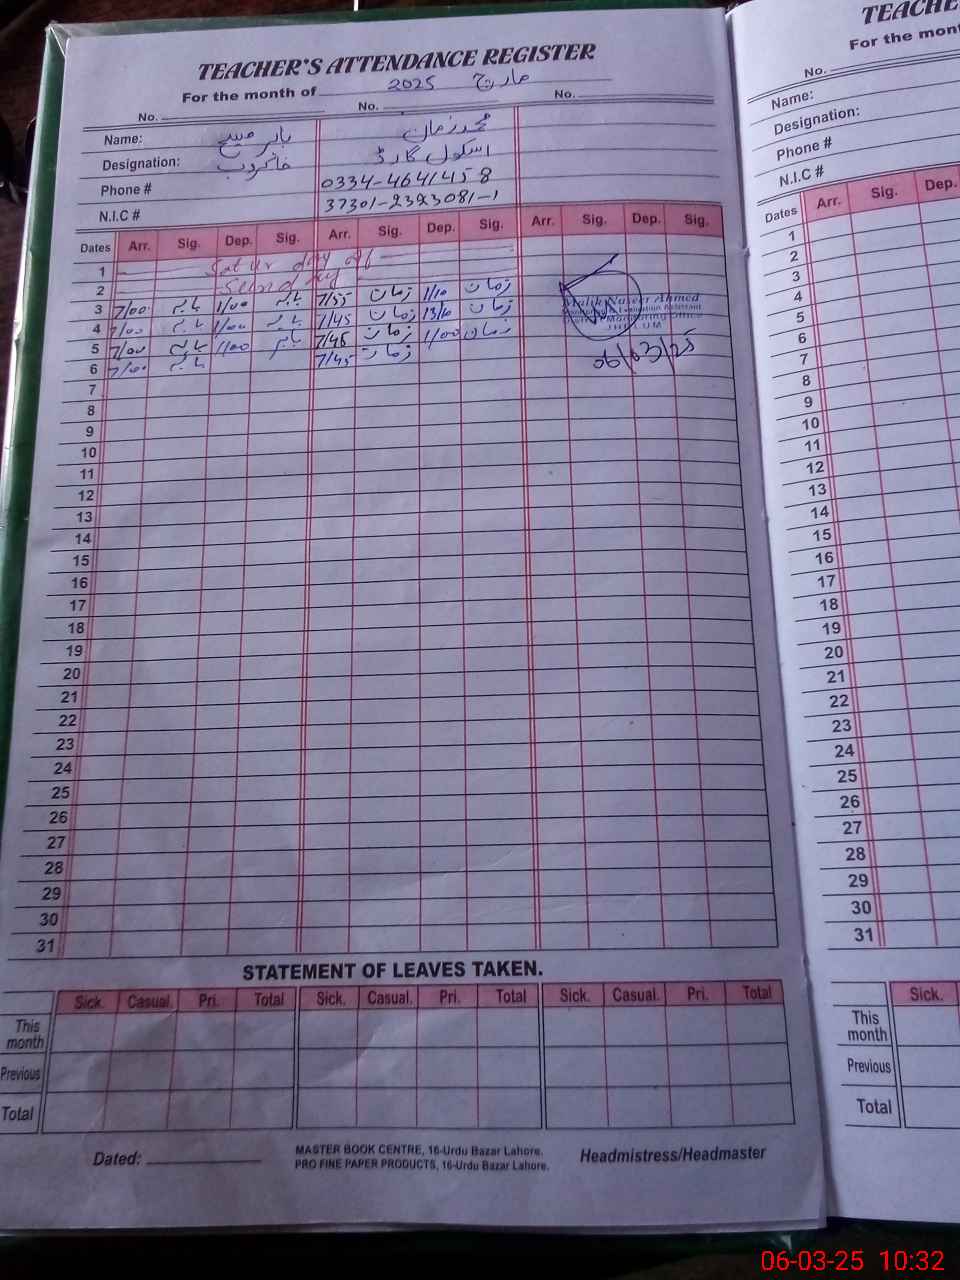 TEACHER'S ATTENDANCE REGISTER
For the month of مارچ 2025
No. No. No.
Name: بابر مسیح محمد زمان
Designation: خاکروب اسکول گارڈ
Phone # 0334-4641458
N.I.C # 37301-2323081-1
Dates Arr. Sig. Dep. Sig. Arr. Sig. Dep. Sig. Arr. Sig. Dep. Sig.
1 Saturday off
2 Sunday
3 7/00 بابر 1/00 بابر 7/55 زمان 1/10 زمان
4 7/00 بابر 1/00 بابر 7/45 زمان 13/10 زمان
5 7/00 بابر 1/00 بابر 7/45 زمان 1/00 زمان
6 7/00 بابر 7/45 زمان
Malik Naseer Ahmed
Monitoring & Evaluation Assistant
District Monitoring Office
JHELUM
06/03/25
7
8
9
10
11
12
13
14
15
16
17
18
19
20
21
22
23
24
25
26
27
28
29
30
31
STATEMENT OF LEAVES TAKEN.
Sick. Casual. Pri. Total Sick. Casual. Pri. Total Sick. Casual. Pri. Total
This month
Previous
Total
Dated:
MASTER BOOK CENTRE, 16-Urdu Bazar Lahore.
PRO FINE PAPER PRODUCTS, 16-Urdu Bazar Lahore.
Headmistress/Headmaster
For the
No.
Name:
Designation:
Phone #
N.I.C #
Dates Arr. Sig. Dep.
1
2
3
4
5
6
7
8
9
10
11
12
13
14
15
16
17
18
19
20
21
22
23
24
25
26
27
28
29
30
31
Sick.
This month
Previous
Total
06-03-25 10:32